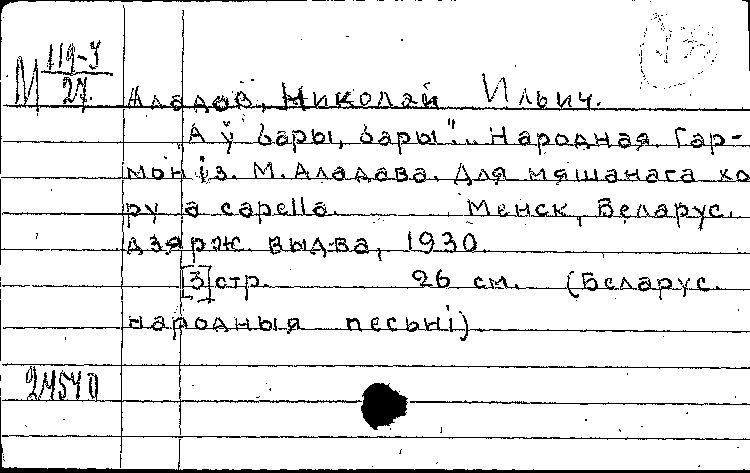 М 119-3
27.
Аладов, Николай Ильич.
А ў бары, бары"... Народная. Гар-
моніз. М. Аладава. Для мяшанага хо
ру a capella. Менск, Беларус.
дзярж. выд-ва, 1930.
[3] стр. 26 см. (Беларус.
народныя песьні).